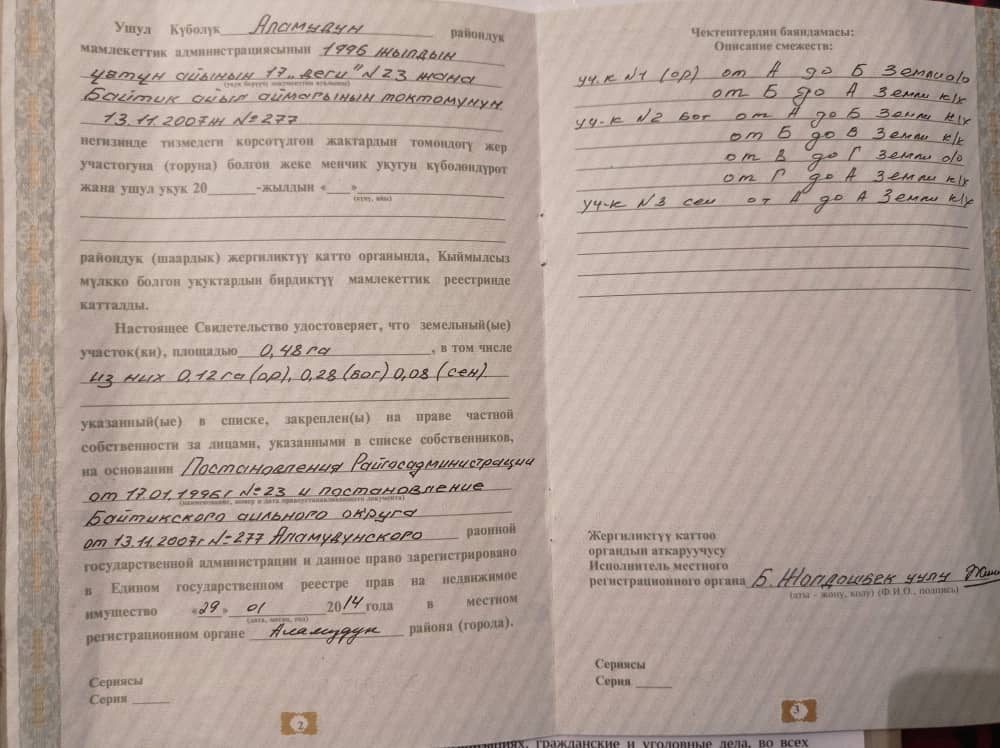 Ушул Күбөлүк Аламудун райондук
мамлекеттик администрациясынын 1996 жылдын
үчтүн айынын 17 „деги" №23 жана
Байтик айыл аймагынын токтомунун
13.11.2007ж №277
негизинде тизмедеги көрсөтүлгөн жактардын төмөндөгү жер
участогуна (торуна) болгон жеке менчик укугун күбөлөндүрөт
жана ушул укук 20 -жылдын « »
(күнү, айы)
райондук (шаардык) жергиликтүү катто органында, Кыймылсыз
мүлккө болгон укуктардын бирдиктүү мамлекеттик реестринде
катталды.
Настоящее Свидетельство удостоверяет, что земельный(ые)
участок(ки), площадью 0,48 га , в том числе
из них 0,12 га (ор), 0,28 (бог) 0,08 (сен)
указанный(ые) в списке, закреплен(ы) на праве частной
собственности за лицами, указанными в списке собственников,
на основании Постановления Райгосадминистрации
от 17.01.1996г №23 и постановление
(наименование, номер и дата правоустанавливающего документа)
Байтикского аильного округа
от 13.11.2007г №277 Аламудунского раонной
государственной администрации и данное право зарегистрировано
в Едином государственном реестре прав на недвижимое
имущество «29» 01 2014 года в местном
(дата, месяц, год)
регистрационном органе Аламудун района (города).
Сериясы
Серия
2
Чектештердин баяндамасы:
Описание смежеств:
уч.к №1 (ор) от А до Б Земли о/о
от Б до А Земли к/х
уч-к №2 бог от А до Б Земли к/х
от Б до В Земли к/х
от В до Г Земли о/о
от Г до А Земли к/х
уч-к №3 сен от А до А Земли к/х
Жергиликтүү каттоо
органдын аткаруучусу
Исполнитель местного
регистрационного органа Б. Жолдошбек уулу
(аты - жөнү, колу) (Ф.И.О., подпись)
Сериясы
Серия
3
гражданские и уголовные дела, во всех